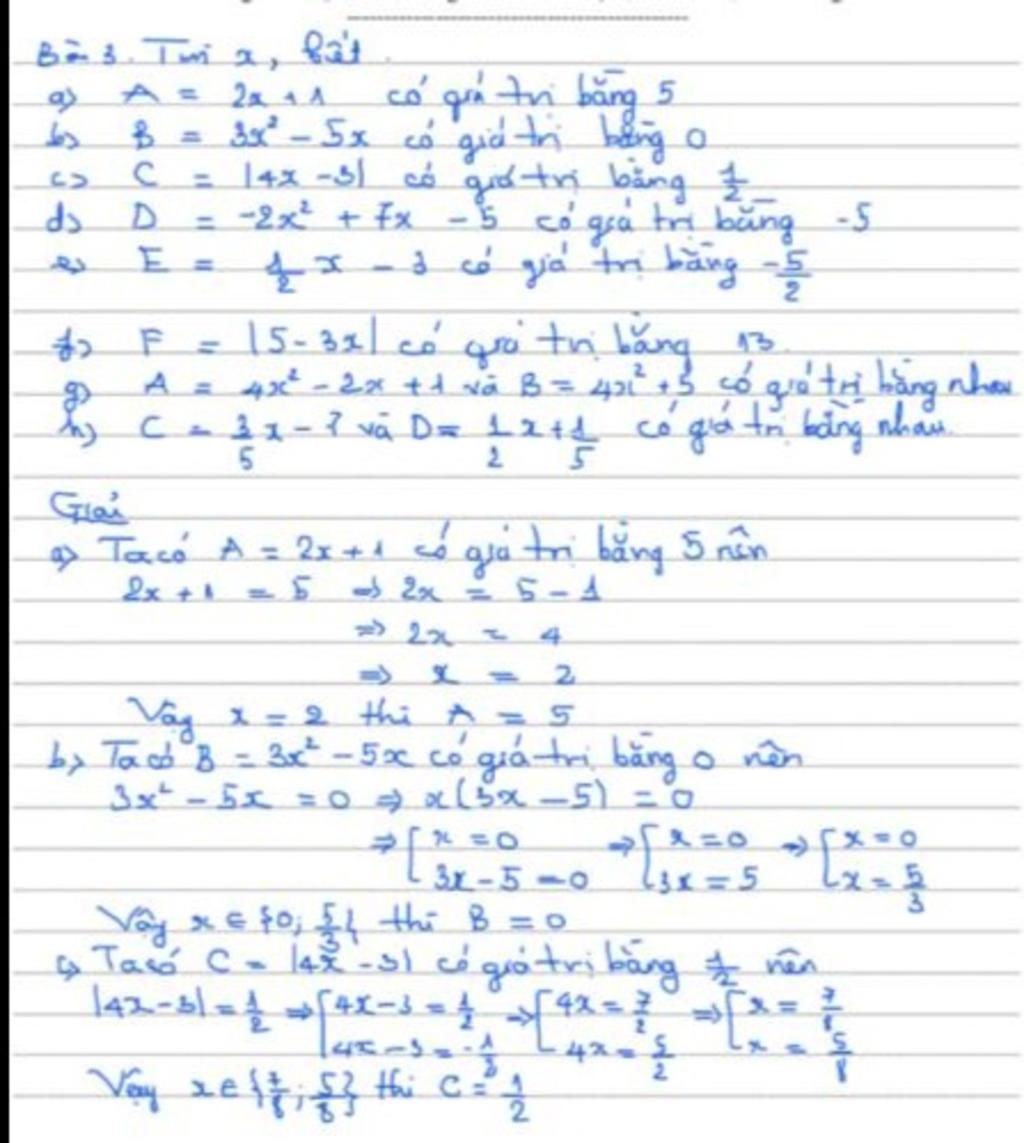 Bài 3. Tìm x, biết
a) A = 2x + 1 có giá trị bằng 5
b) B = 3x² - 5x có giá trị bằng 0
c) C = |4x - 3| có giá trị bằng 1/2
d) D = -2x² + 7x - 5 có giá trị bằng -5
e) E = 1/2 x - 3 có giá trị bằng -5/2
f) F = |5 - 3x| có giá trị bằng 13
g) A = 4x² - 2x + 1 và B = 4x² + 5 có giá trị bằng nhau
h) C = 3/5 x - 7 và D = 1/2 x + 1/5 có giá trị bằng nhau.
Giải
a) Ta có A = 2x + 1 có giá trị bằng 5 nên
2x + 1 = 5 => 2x = 5 - 1
=> 2x = 4
=> x = 2
Vậy x = 2 thì A = 5
b) Ta có B = 3x² - 5x có giá trị bằng 0 nên
3x² - 5x = 0 => x(3x - 5) = 0
=> [ x = 0 => [ x = 0 => [ x = 0
3x - 5 = 0 3x = 5 x = 5/3
Vậy x ∈ {0; 5/3} thì B = 0
c) Ta có C = |4x - 3| có giá trị bằng 1/2 nên
|4x - 3| = 1/2 => [ 4x - 3 = 1/2 => [ 4x = 7/2 => [ x = 7/8
4x - 3 = -1/2 4x = 5/2 x = 5/8
Vậy x ∈ {7/8; 5/8} thì C = 1/2